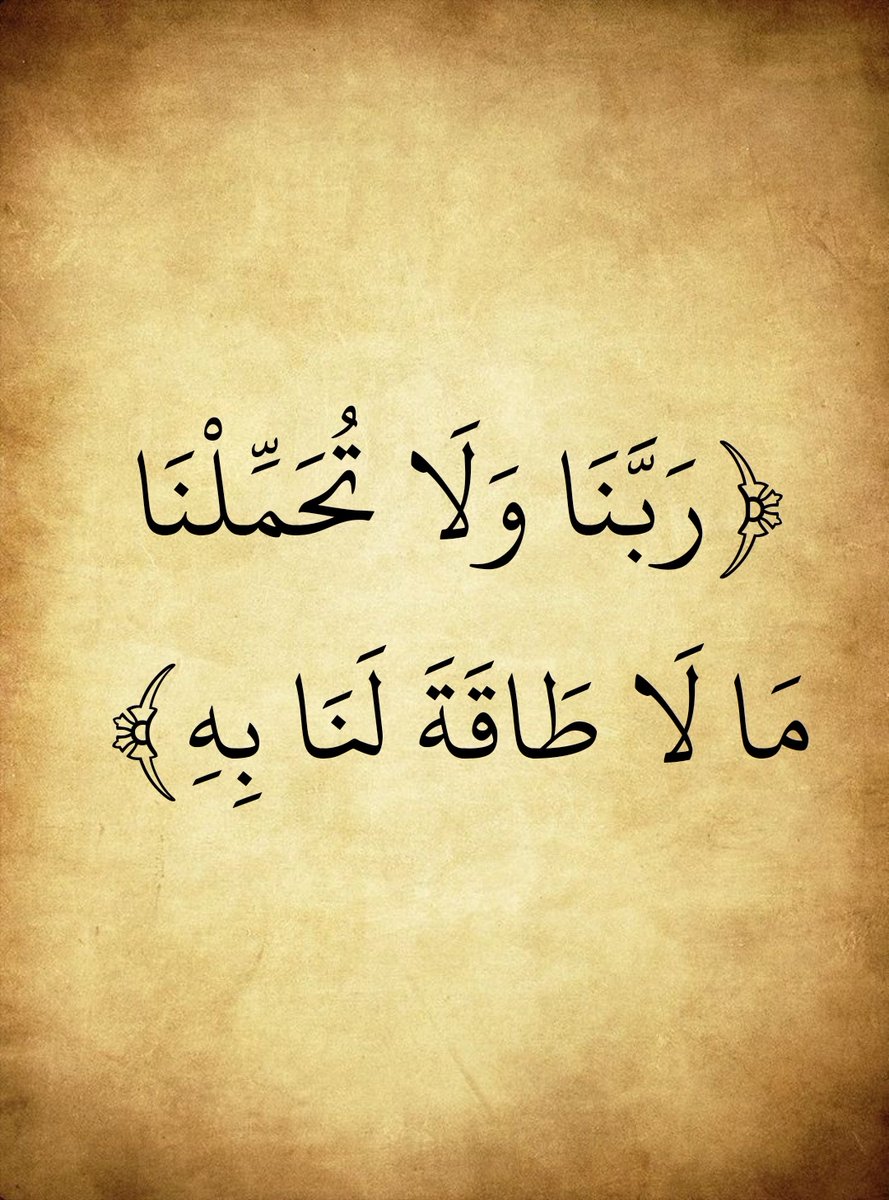 ﴿رَبَّنَا وَلَا تُحَمِّلْنَا
مَا لَا طَاقَةَ لَنَا بِهِ﴾